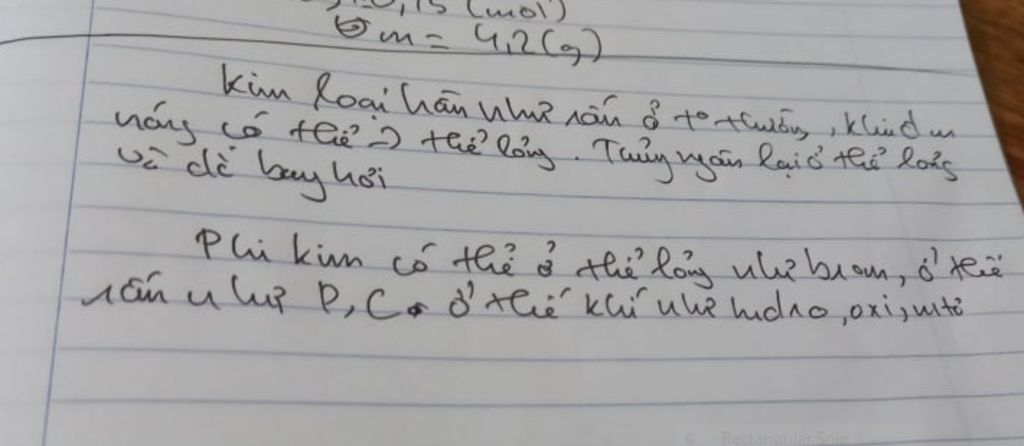 0,15 (mol)
m = 4,2 (g)
Kim loại hầu như rắn ở t° thường, khi đun
nóng có thể → thể lỏng. Thủy ngân lại ở thể lỏng
và dễ bay hơi
Phi kim có thể ở thể lỏng như brom, ở thể
rắn như P, C ở thể khí như hidro, oxi, nitơ
Rectangular Snip